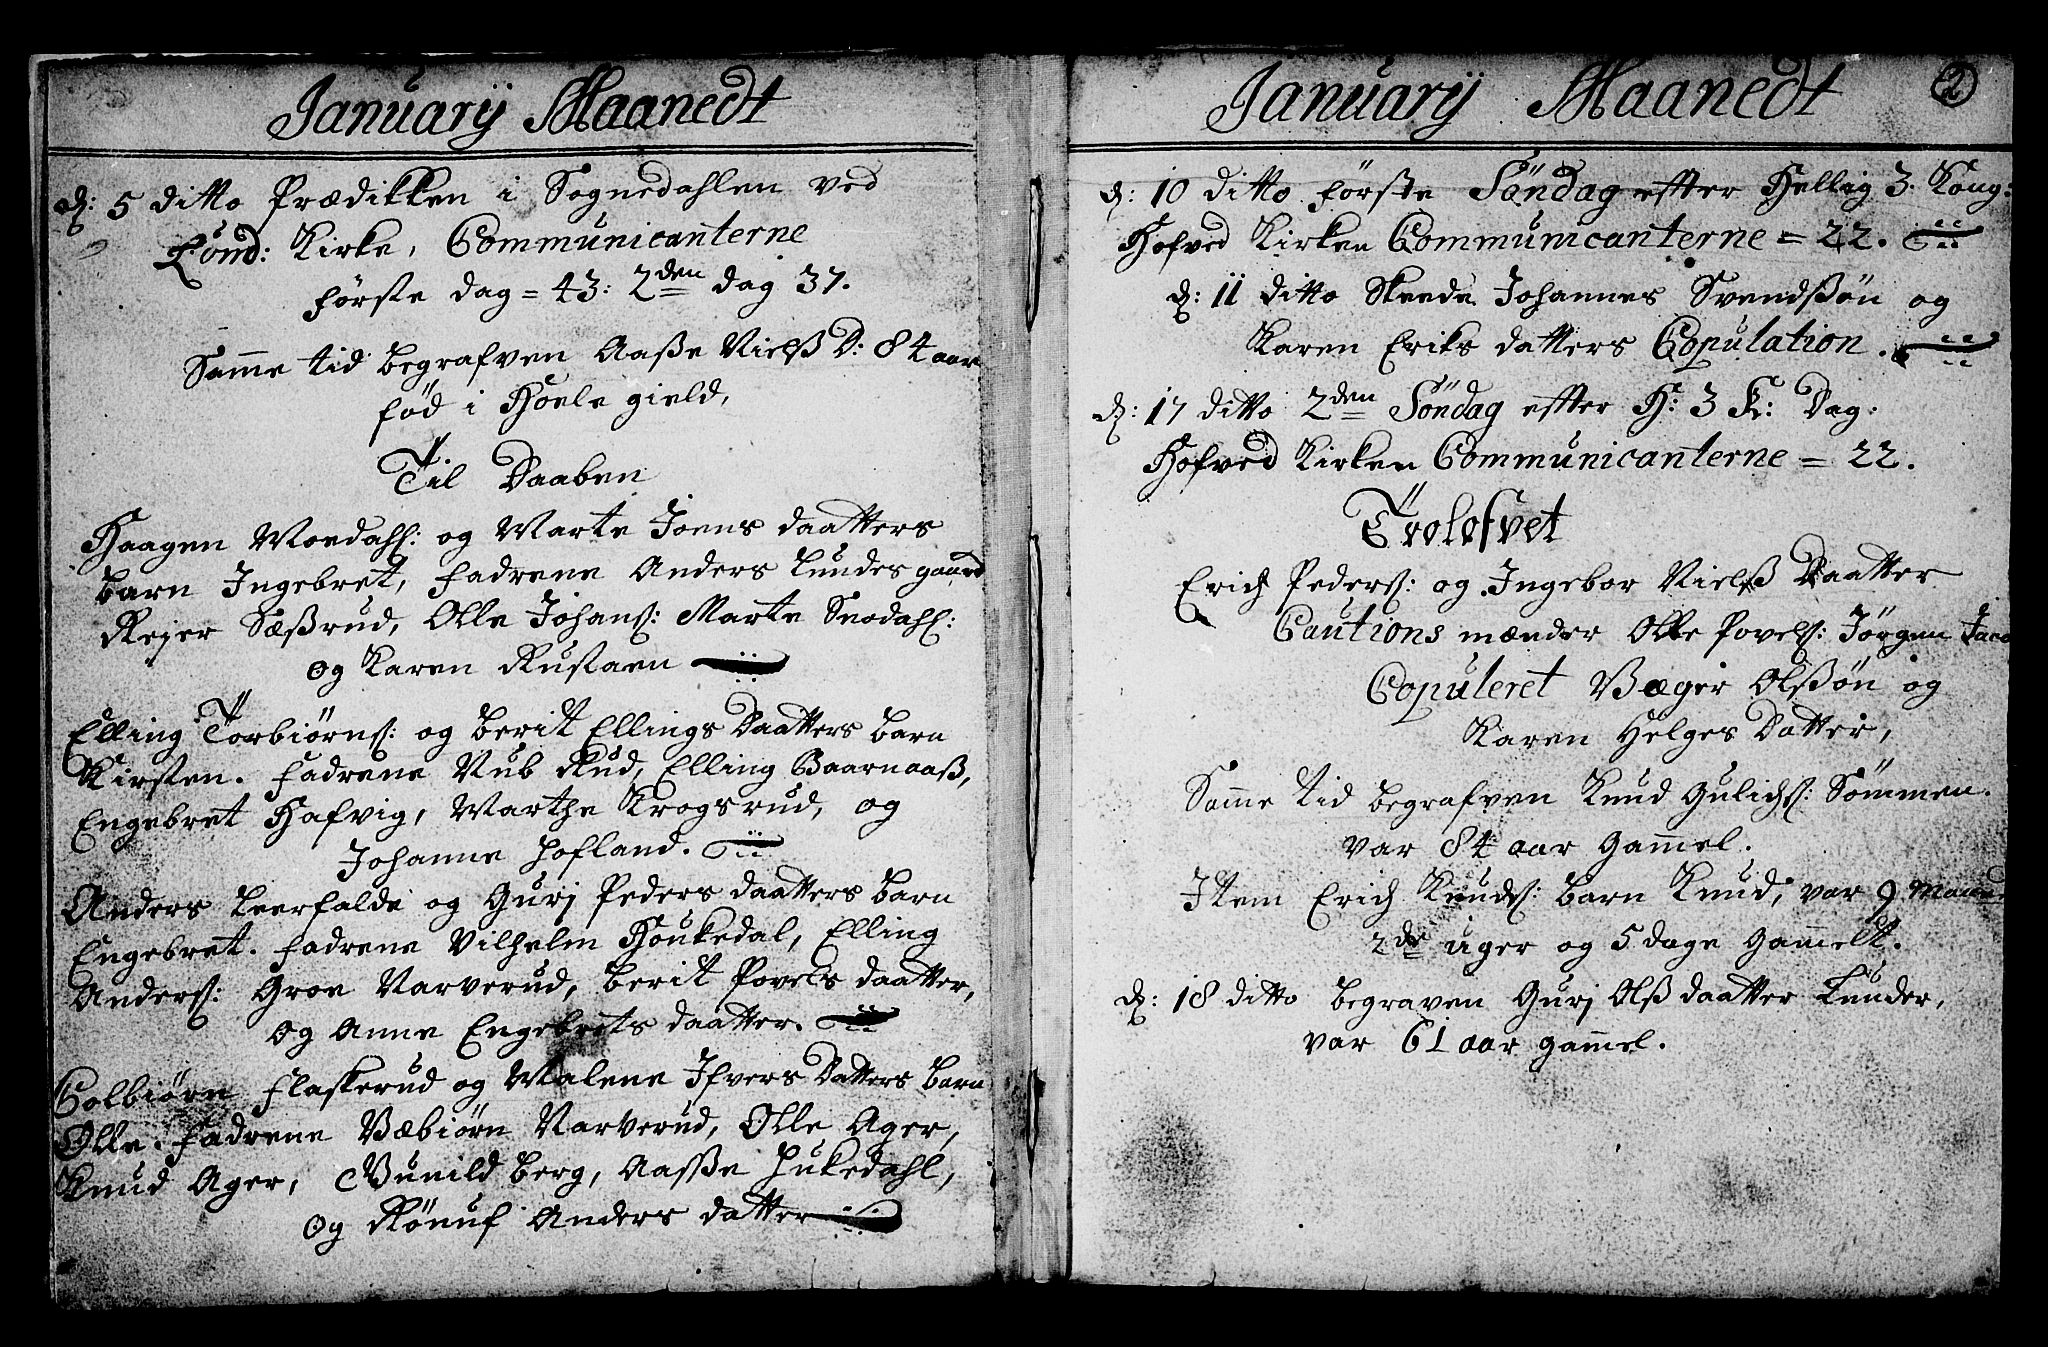 Januarij Maanedt
d: 5 ditto Prædikken i Sognedahlen ved
Lund: Kirke, Communicanterne
første dag = 43: 2den dag 37.
Samme tid begrafven Aaße Nielß D: 84 aar
fød i Hoele gield,
Til Daaben
Haagen Moedahl: og Marte Joens daatters
barn Ingebret, fadrene Anders Lundesgaard
Rejer Sæßrud, Olle Johans: Marte Snodahl:
og Karen Rustaen
Elling Torbiørns: og berit Ellings Daatters barn
Kirsten. fadrene Nub Rud, Elling Baarnaaß,
Engebret Hafvig, Marthe Krogsrud, og
Johanne Hofland.
Anders Leerfalde og Gurj Peders daatters barn
Engebret. fadrene Vilhelm Houkedal, Elling
Anders: Groe Narverud, berit Povels daatter,
og Anne Engebrets daatter.
Colbiørn Flaskerud og Malene Ifvers Datters barn
Olle. Fadrene Væbiørn Narverud, Olle Ager,
Knud Ager, Gunild berg, Aasße Hukedahl,
og Rønuf Anders datter
Januarij Maanedt 2
d: 10 ditto første Söndag effter Hellig 3. Kong:
Hofved Kirken Communicanterne = 22.
d: 11 ditto Skeede Johannes Svendßøn og
Karen Eriks datters Copulation.
d: 17 ditto 2den Söndag effter H: 3 K: Dag:
Hofved Kirken Communicanterne = 22.
Trolofvet
Erich Peders: og Ingebor Nielß Daatter
Cautions mænder Olle Povels: Jörgen Jaco
Copuleret Væger Olßøn og
Karen Helges Datter,
Samme tid begrafven Knud Gulichs: Sömmen.
var 84 aar Gammel.
Item Erich Knuds: barn Knud, var 9 maaned
2de uger og 5 dage gammelt.
d: 18 ditto begraven Gurj Olß daatter Lunder,
var 61 aar gammel.